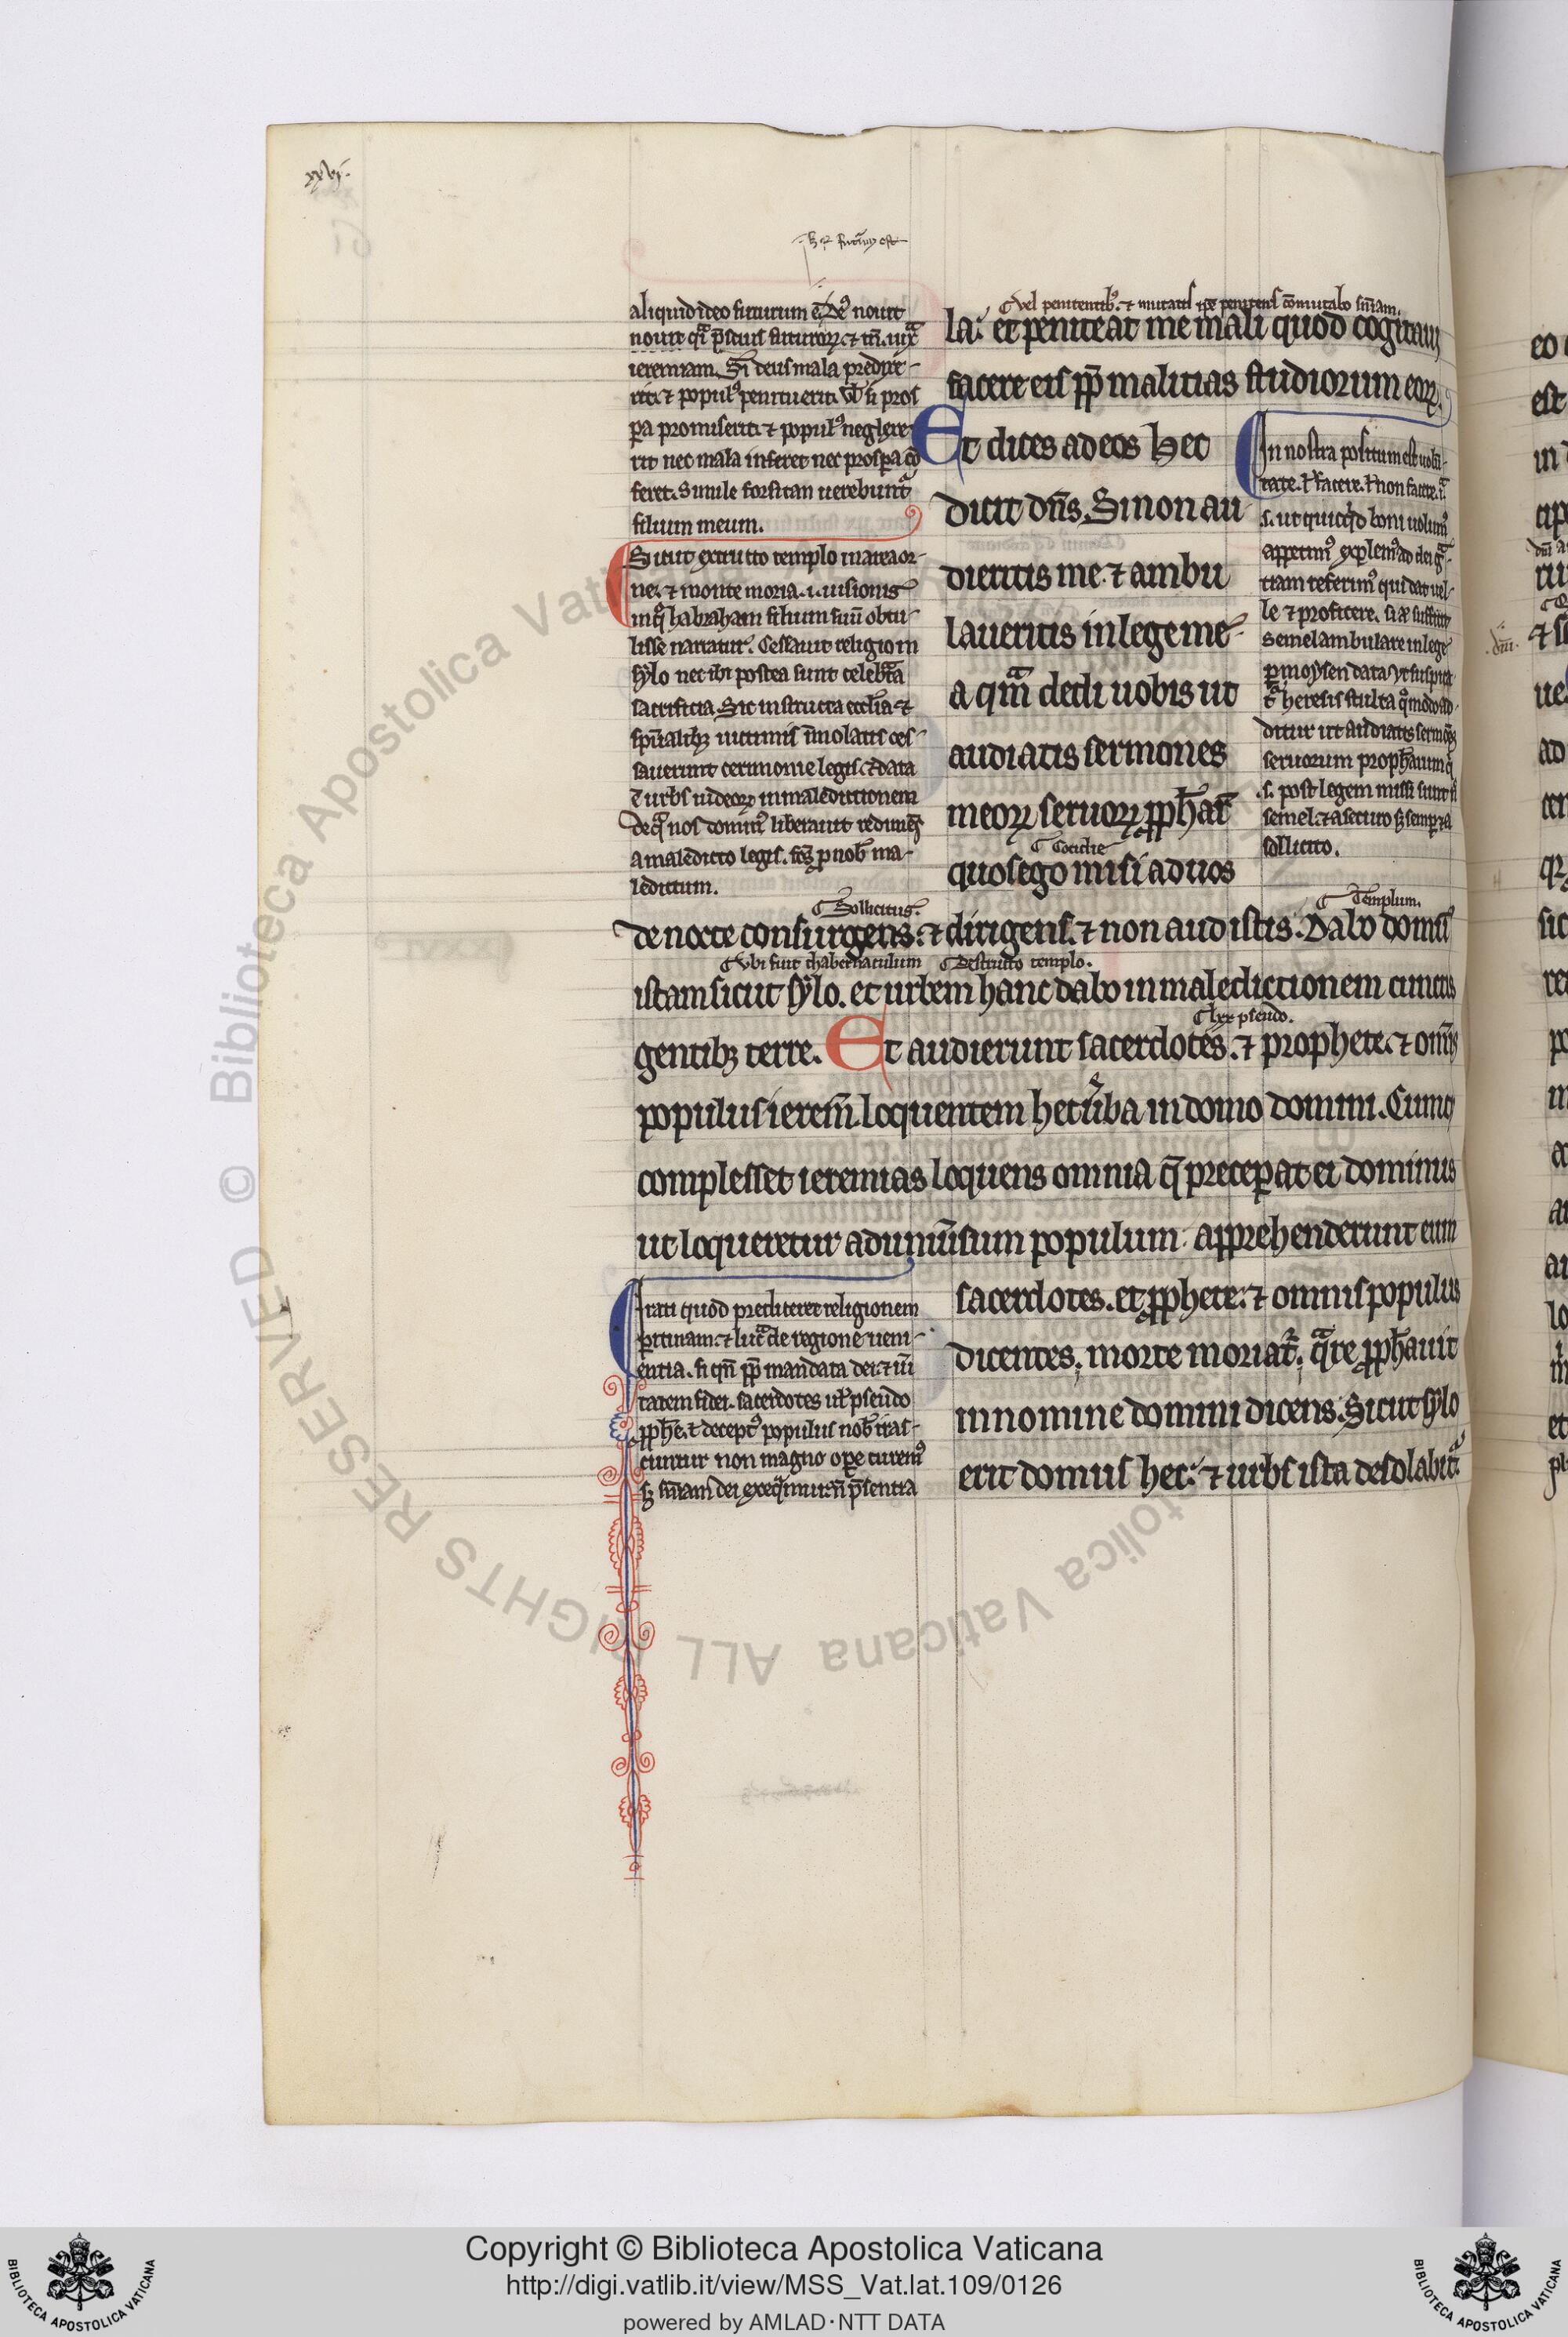 xxvi.
aliquid ideo futurum ē. deꝰ nouit
nouit qͥa p̄scius futuroꝝ. ⁊ tn̄. iuxͣ
ieremiam. Si deus mala predixe-
rit. ⁊ populꝰ penituerit. ul̓ si pros
ꝑa promiserit. ⁊ populꝰ neglexe
rit nec mala inferet nec prosꝑa cō
feret. Simile forsitan uerebunt᷑
filium meum.
Sicut extructo templo in area or-
ne. ⁊ monte moria. i. uisionis
in qͦ habraham filium suū obtu-
lisse narratur. Cessauit religio in
sylo nec ibi postea sunt celebͣta
sacrificia. Sic instructa eccl̓ia ⁊
spūalibꝫ uictimis īmolatis ces-
sauerunt cerimonie legis. ⁊ data
ē urbs iudeoꝝ in maledictionem
de qͣ nos dominꝰ liberauit redimēs
a maledicto legis. fcs̄ ꝓ nob̓ ma-
ledictum.
Vel penitentibꝰ. ⁊ mutatis ipse penitens cōmutabo sn̄iam.
la. et peniteat me mali quod cogitaui
facere eis ꝓpͭ malitias studiorum eoꝝ.
Et dices ad eos Hec
dicit dn̄s. Si non au
dieritis me. ⁊ ambu
laueritis in lege me-
a qͣm dedi uobis ut
audiatis sermones
meoꝝ seruoꝝ ꝓph̄aꝝ
Cotidie
quos ego misi ad uos
In nostra positum est uolū-
tate. ul̓ facere. ul̓ non facere.
s. ut quicqͥd boni uolumꝰ
appetimꝰ explemꝰ ad dei gͣ
tiam referimꝰ qui dat uel-
le ⁊ proficere. si a̅ sufficit
semel ambulare in lege
ꝑ moysen data ut suspica
t᷑ heresis stulta qͦmodo ad-
ditur ut audiatis sermones
seruorum prophetarum q̄
s. post legem missi sunt ⁊ n̄
semel. ⁊ a securo sꝫ semꝑ ⁊ a
sollicito.
Sollicitus. Templum.
de nocte consurgens. ⁊ dirigens. ⁊ non audistis. Dabo domū
Vbi fuit thabernaculum Destructo templo.
istam sicut sylo. et urbem hanc dabo in maledictionem cunctis
lxx pseudo.
gentibꝫ terre. Et audierunt sacerdotes. ⁊ prophete. ⁊ omīs
populus ierem̄. loquentem hec ūba in domo domini. Cumqꝫ
complesset ieremias loquens omnia q̄ preceꝑat ei dominus
ut loqueretur ad uniūsum populum. apprehenderunt eum
Irati quod prediceret religionem
ꝑituram. ⁊ lucͣ de regione ueni-
entia. si qn̄ ꝓpͭ mandata dei. ⁊ ūi
tatem fidei. sacerdotes ul̓ pseudo
ꝓphe. ⁊ deceptꝰ populus nob̓ iras-
cuntur non magno oꝑe curemꝰ
sꝫ sn̄iam dei exeqͣmur. n̄ p̄sentia
sacerdotes. et ꝓphete. ⁊ omnis populus
dicentes. morte moriat᷑. qͣre ꝓph̄auit
in nomine domini dicens. Sicut sylo
erit domus hec. ⁊ urbs ista desolabit᷑
© Biblioteca Apostolica Vaticana ALL RIGHTS RESERVED
Copyright © Biblioteca Apostolica Vaticana
http://digi.vatlib.it/view/MSS_Vat.lat.109/0126
powered by AMLAD·NTT DATA
BIBLIOTECA APOSTOLICA VATICANA
BIBLIOTECA APOSTOLICA VATICANA